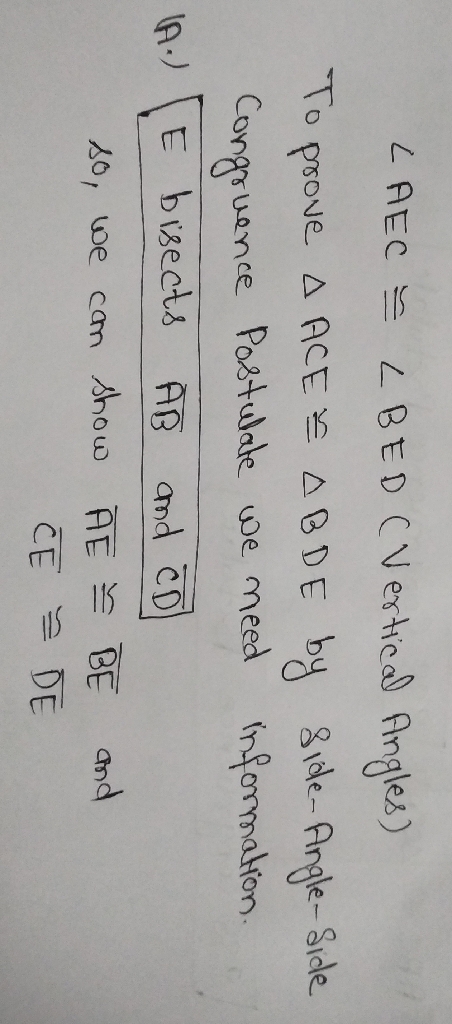 ∠AEC ≅ ∠BED (Vertical Angles)
To prove △ACE ≅ △BDE by Side-Angle-Side
Congruence Postulate we need information.
(A.) E bisects A̅B̅ and C̅D̅
so, we can show A̅E̅ ≅ B̅E̅ and
C̅E̅ ≅ D̅E̅